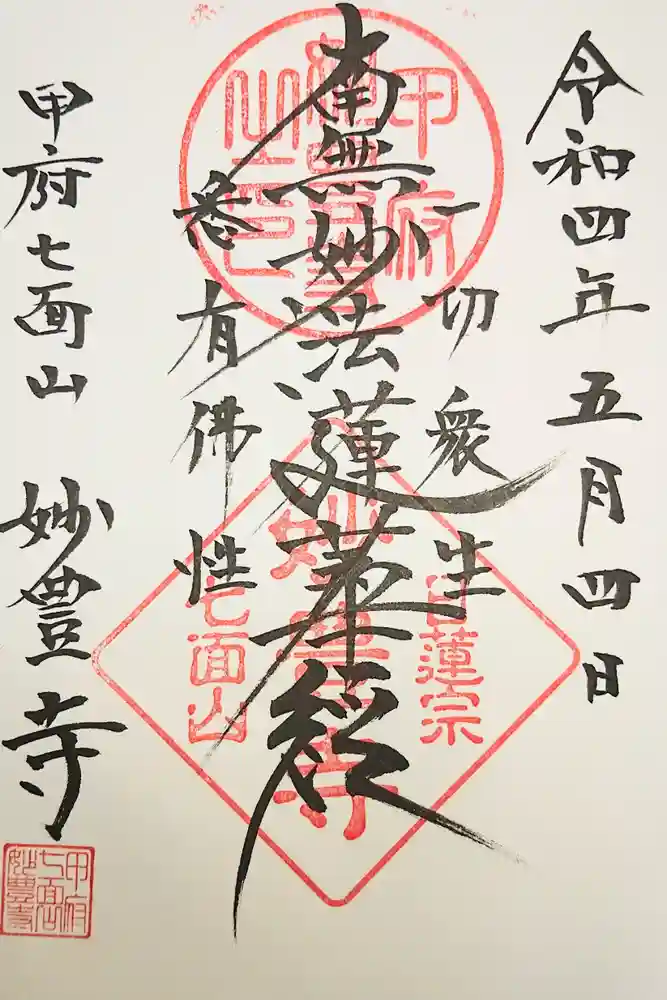 令和四年五月四日
一切衆生
南無妙法蓮華経
悉有佛性
甲府七面山 妙豊寺
甲府
日蓮宗
妙豊寺
七面山
甲府
七面山
妙豊寺